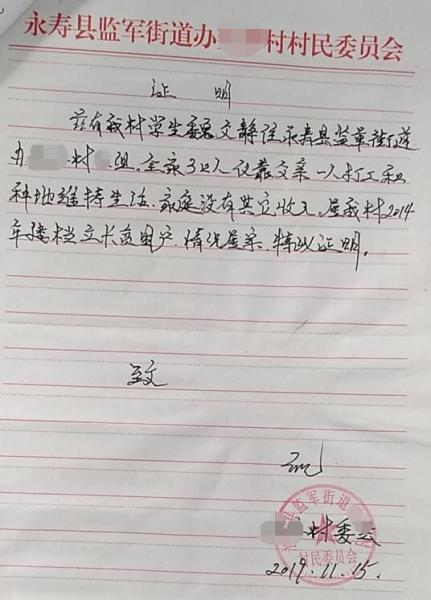 永寿县监军街道办 村村民委员会
证 明
兹有我村学生魏文静住永寿县监军街道
办 村 组,全家3口人仅靠父亲一人打工和
种地维持生活,家庭没有其它收入,属我村2014
年建档立卡贫困户,情况属实,特此证明。
致
礼
村委会
县监军街道
村民委员会
2019.11.15.